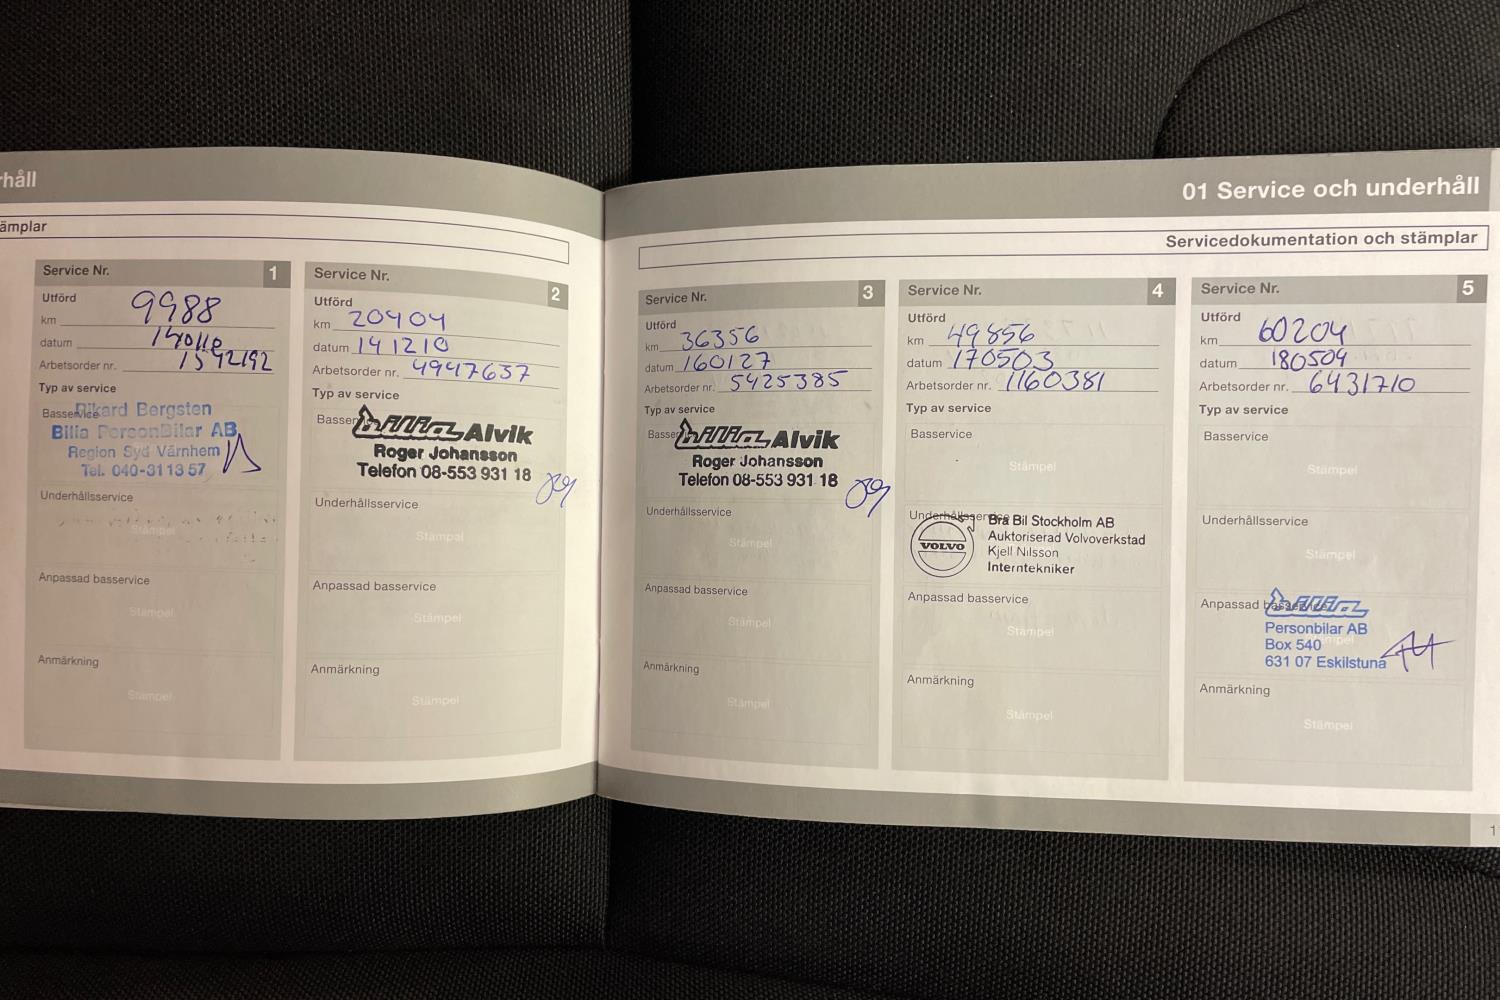 rhåll
ämplar
Service Nr. 1
Utförd
km 9988
datum 140116
Arbetsorder nr. 1542192
Typ av service
Basservice
Rikard Bergsten
Bilia PersonBilar AB
Region Syd Värnhem
Tel. 040-31 13 57
Underhållsservice
Stämpel
Anpassad basservice
Stämpel
Anmärkning
Stämpel
Service Nr. 2
Utförd
km 20404
datum 141210
Arbetsorder nr. 4947637
Typ av service
Basser
bilia Alvik
Roger Johansson
Telefon 08-553 931 18
Underhållsservice
Stämpel
Anpassad basservice
Stämpel
Anmärkning
Stämpel
01 Service och underhåll
Servicedokumentation och stämplar
Service Nr. 3
Utförd
km 36356
datum 160127
Arbetsorder nr. 5425385
Typ av service
Basser
bilia Alvik
Roger Johansson
Telefon 08-553 931 18
Underhållsservice
Stämpel
Anpassad basservice
Stämpel
Anmärkning
Stämpel
Service Nr. 4
Utförd
km 49856
datum 170503
Arbetsorder nr. 1160381
Typ av service
Basservice
Stämpel
Underhållsservice
VOLVO
Bra Bil Stockholm AB
Auktoriserad Volvoverkstad
Kjell Nilsson
Interntekniker
Anpassad basservice
Stämpel
Anmärkning
Stämpel
Service Nr. 5
Utförd
km 60204
datum 180509
Arbetsorder nr. 6431710
Typ av service
Basservice
Stämpel
Underhållsservice
Stämpel
Anpassad basservice
bilia
Personbilar AB
Box 540
631 07 Eskilstuna
Anmärkning
Stämpel
1